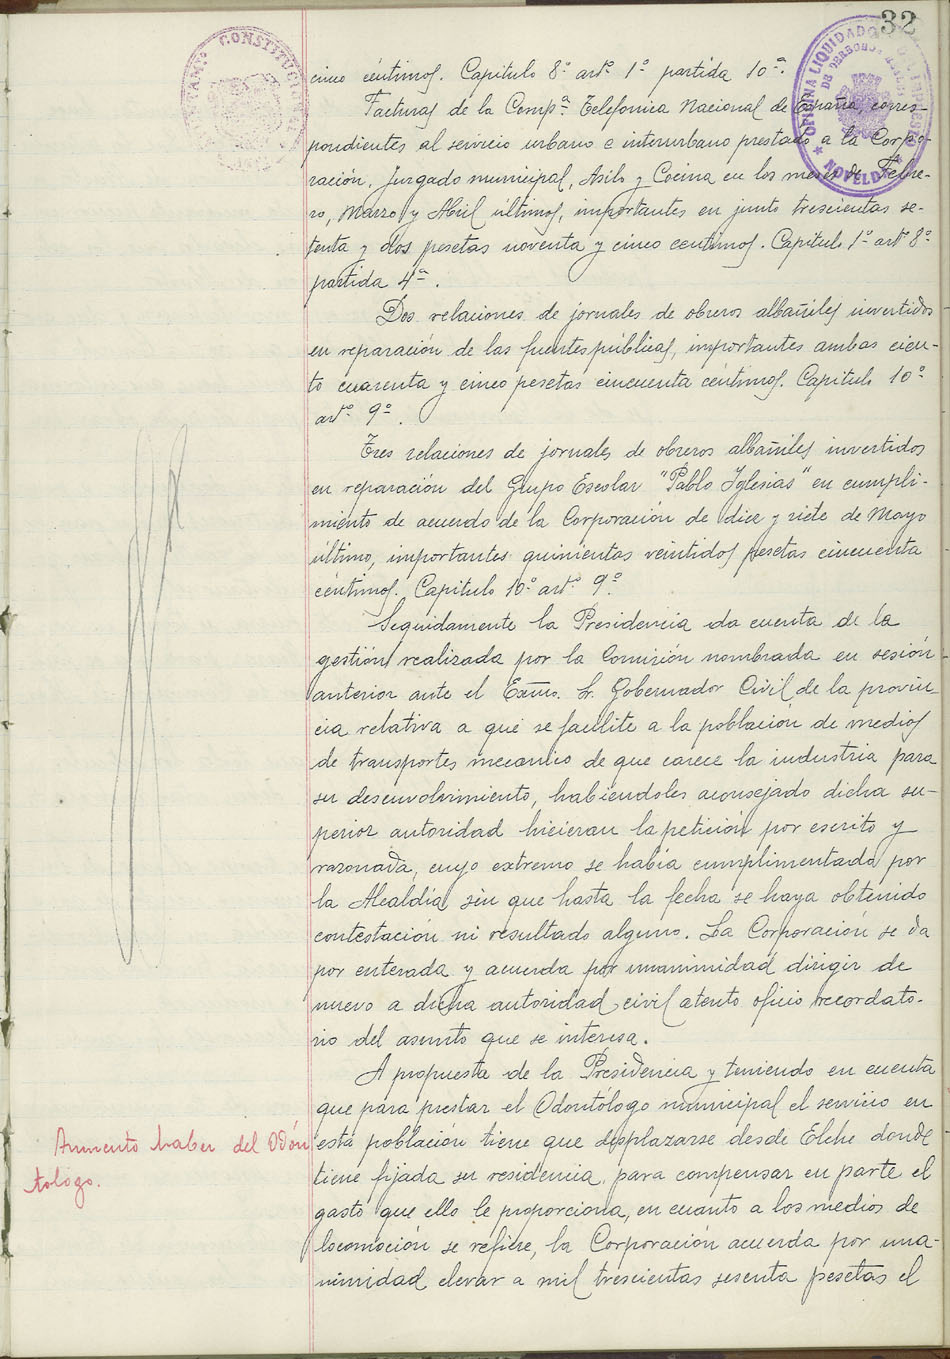 32
AYUNTAMº CONSTITUCIONAL
OFICINA LIQUIDADORA DEL IMPUESTO
DE DERECHOS REALES
* NOVELDA *
cinco céntimos. Capitulo 8º artº 1º partida 10ª.
Facturas de la Compª Telefonica Nacional de España, corres-
pondientes al servicio urbano e interurbano prestado a la Corpo-
ración, Juzgado municipal, Asilo y Cocina en los meses de Febre-
ro, Marzo y Abril últimos, importantes en junto trescientas se-
tenta y dos pesetas noventa y cinco centimos. Capitulo 1º artº 8º
partida 4ª.
Dos relaciones de jornales de obreros albañiles invertidos
en reparación de las fuentes públicas, importantes ambas cien-
to cuarenta y cinco pesetas cincuenta céntimos. Capitulo 10º
artº 9º.
Tres relaciones de jornales de obreros albañiles invertidos
en reparación del Grupo Escolar "Pablo Iglesias" en cumpli-
miento de acuerdo de la Corporación de diez y siete de Mayo
último, importantes quinientas veintidos pesetas cincuenta
céntimos. Capitulo 10º artº 9º
Seguidamente la Presidencia da cuenta de la
gestión realizada por la Comisión nombrada en sesión
anterior ante el Excmo. Sr. Gobernador Civil de la provin
cia relativa a que se facilite a la población de medios
de transportes mecanico de que carece la industria para
su desenvolvimiento, habiendoles aconsejado dicha su-
perior autoridad hicieran la petición por escrito y
razonada, cuyo extremo se había cumplimentado por
la Alcaldía sin que hasta la fecha se haya obtenido
contestación ni resultado alguno. La Corporación se da
por enterada y acuerda por unanimidad dirigir de
nuevo a dicha autoridad civil atento oficio recordato-
rio del asunto que se interesa.
A propuesta de la Presidencia y teniendo en cuenta
que para prestar el Odontólogo municipal el servicio en
Aumento haber del Odón
tologo.
esta población tiene que desplazarse desde Elche donde
tiene fijada su residencia, para compensar en parte el
gasto que ello le proporciona, en cuanto a los medios de
locomoción se refiere, la Corporación acuerda por una-
nimidad elevar a mil trescientas sesenta pesetas el